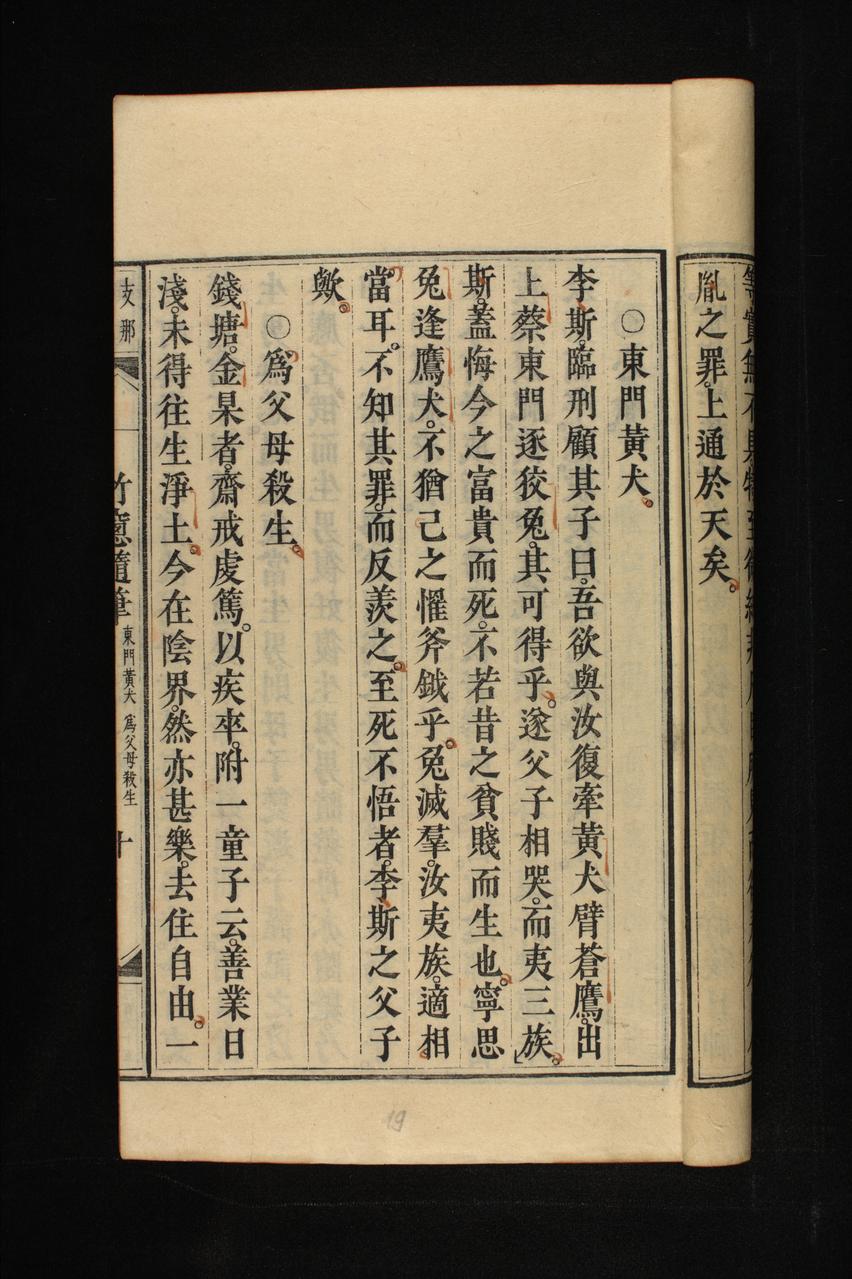 胤之罪。上通於天矣。
○東門黃犬。
李斯。臨刑顧其子曰。吾欲與汝復牽黃犬臂蒼鷹。出
上蔡東門逐狡兔。其可得乎。遂父子相哭。而夷三族。
斯。蓋悔今之富貴而死。不若昔之貧賤而生也。寧思
兔逢鷹犬。不猶己之罹斧鉞乎。兔滅羣。汝夷族。適相
當耳。不知其罪。而反羨之。至死不悟者。李斯之父子
歟。
○爲父母殺生。
錢塘。金杲者。齋戒虔篤。以疾卒。附一童子云。善業日
淺。未得往生淨土。今在陰界。然亦甚樂。去住自由。一
支那
竹窻隨筆 東門黃犬 爲父母殺生 十
19